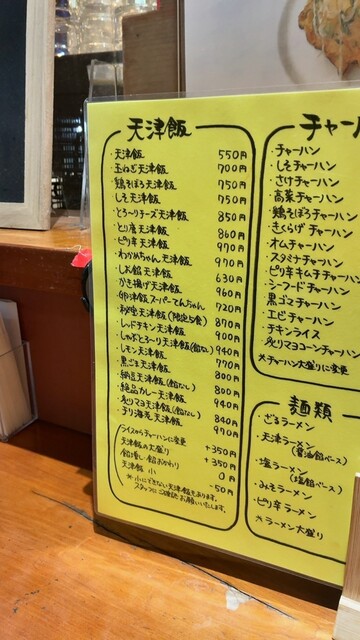 天津飯
・天津飯 550円
・玉ねぎ天津飯 700円
・鶏そぼろ天津飯 750円
・しそ天津飯 750円
・とろ〜りチーズ天津飯 850円
・とり唐天津飯 860円
・ピリ辛天津飯 970円
・わかめちゃん天津飯 970円
・しお餡天津飯 630円
・かき揚げ天津飯 960円
・卵津飯スーパーてんちゃん 720円
・秘宝天津飯(限定5食) 870円
・レッドチキン天津飯 900円
・しゃぶとろ〜り天津飯(餡なし) 940円
・レモン天津飯 770円
・黒ごま天津飯 800円
・納豆天津飯(餡なし) 800円
・絶品カレー天津飯 940円
・炙りマヨ天津飯(餡なし) 840円
・天津飯 990円
ライスからチャーハンに変更 +350円
天津飯の大盛り +350円
餡増し・餡おかわり 0円
天津飯 小 -50円
※小にできない天津飯もあります。
スタッフにご確認お願いいたします。
チャー
・チャーハン
・しそチャーハン
・さけチャーハン
・高菜チャーハン
・鶏そぼろチャーハン
・きくらげチャーハン
・オムチャーハン
・スタミナチャーハン
・ピリ辛キムチチャーハン
・シーフードチャーハン
・黒ゴマチャーハン
・エビチャーハン
・チキンライス
・炙りマヨコーンチャーハン
※チャーハン大盛りに変更
麺類
・ざるラーメン
・天津ラーメン
(醤油餡ベース)
・塩ラーメン
(塩餡ベース)
・みそラーメン
・ピリ辛ラーメン
※ラーメン大盛り